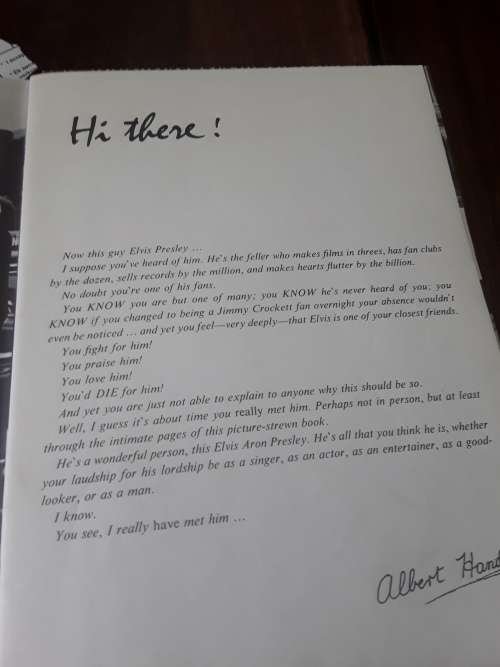 Hi there!
Now this guy Elvis Presley ...
I suppose you've heard of him. He's the feller who makes films in threes, has fan clubs
by the dozen, sells records by the million, and makes hearts flutter by the billion.
No doubt you're one of his fans.
You KNOW you are but one of many; you KNOW he's never heard of you; you
KNOW if you changed to being a Jimmy Crockett fan overnight your absence wouldn't
even be noticed ... and yet you feel—very deeply—that Elvis is one of your closest friends.
You fight for him!
You praise him!
You love him!
You'd DIE for him!
And yet you are just not able to explain to anyone why this should be so.
Well, I guess it's about time you really met him. Perhaps not in person, but at least
through the intimate pages of this picture-strewn book.
He's a wonderful person, this Elvis Aron Presley. He's all that you think he is, whether
your laudship for his lordship be as a singer, as an actor, as an entertainer, as a good-
looker, or as a man.
I know.
You see, I really have met him ...
Albert Hand